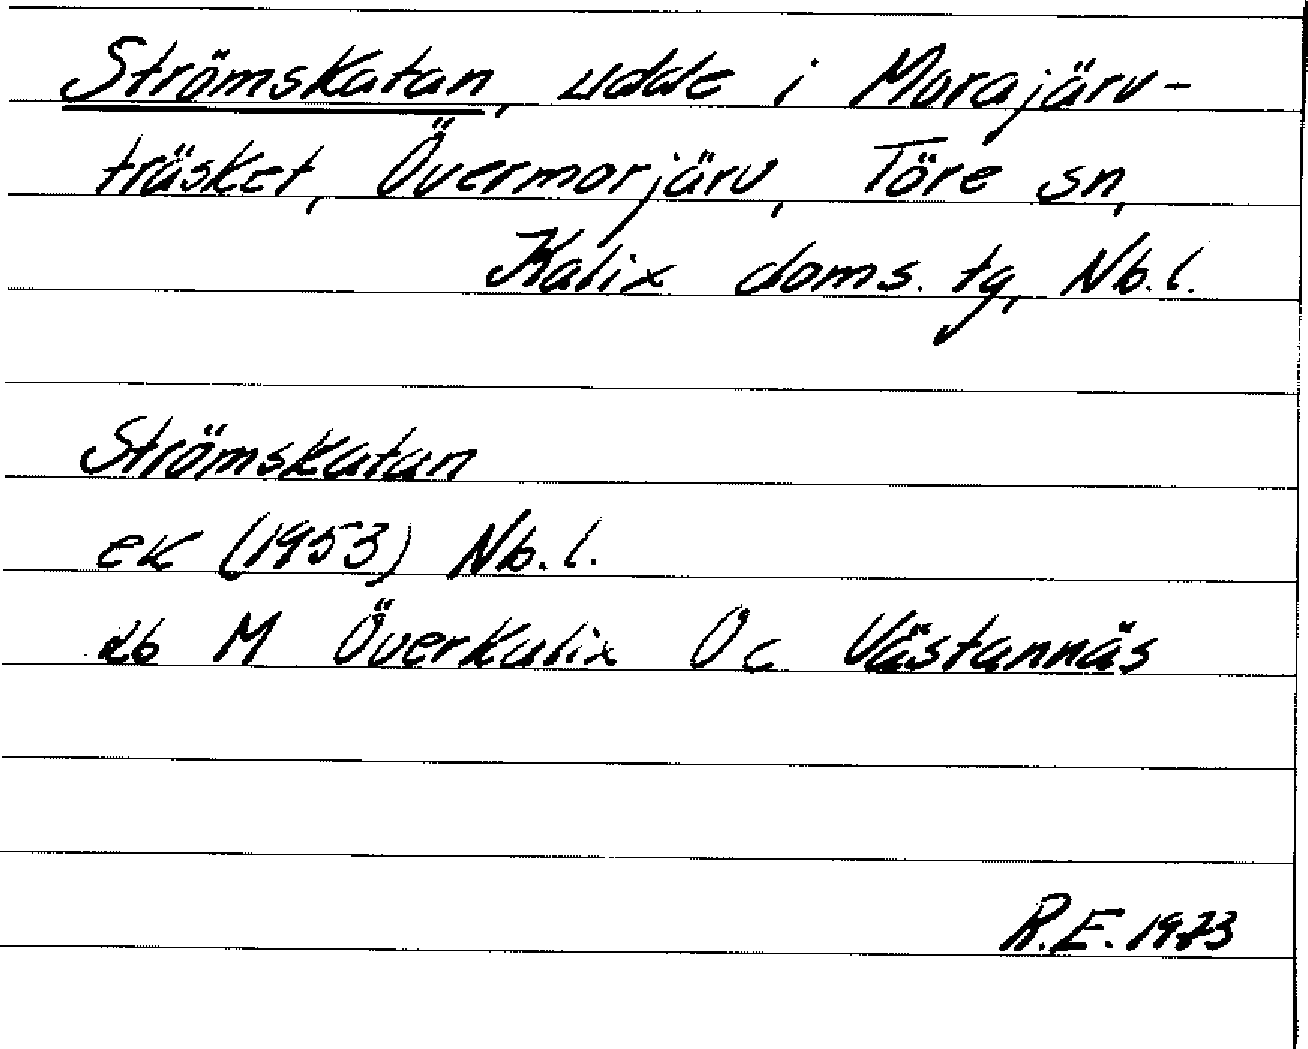 Strömskatan, udde i Morajärv-
träsket, Övermorjärv, Töre sn,
Kalix doms. tg, Nb.l.
Strömskatan
ek (1953) Nb.l.
26 M Överkalix Öc Västannäs
R.E. 1973